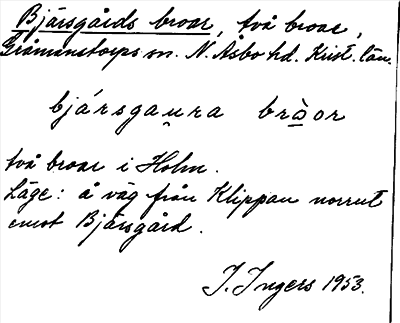 Bjärsgårds broar, två broar,
Gråmanstorps sn. N. Åsbo hd. Krist. län.
bjársgau̯ra brɑ̀or
två broar i Holm.
Läge: å väg från Klippan norrut
emot Bjärsgård.
J. Ingers 1953.